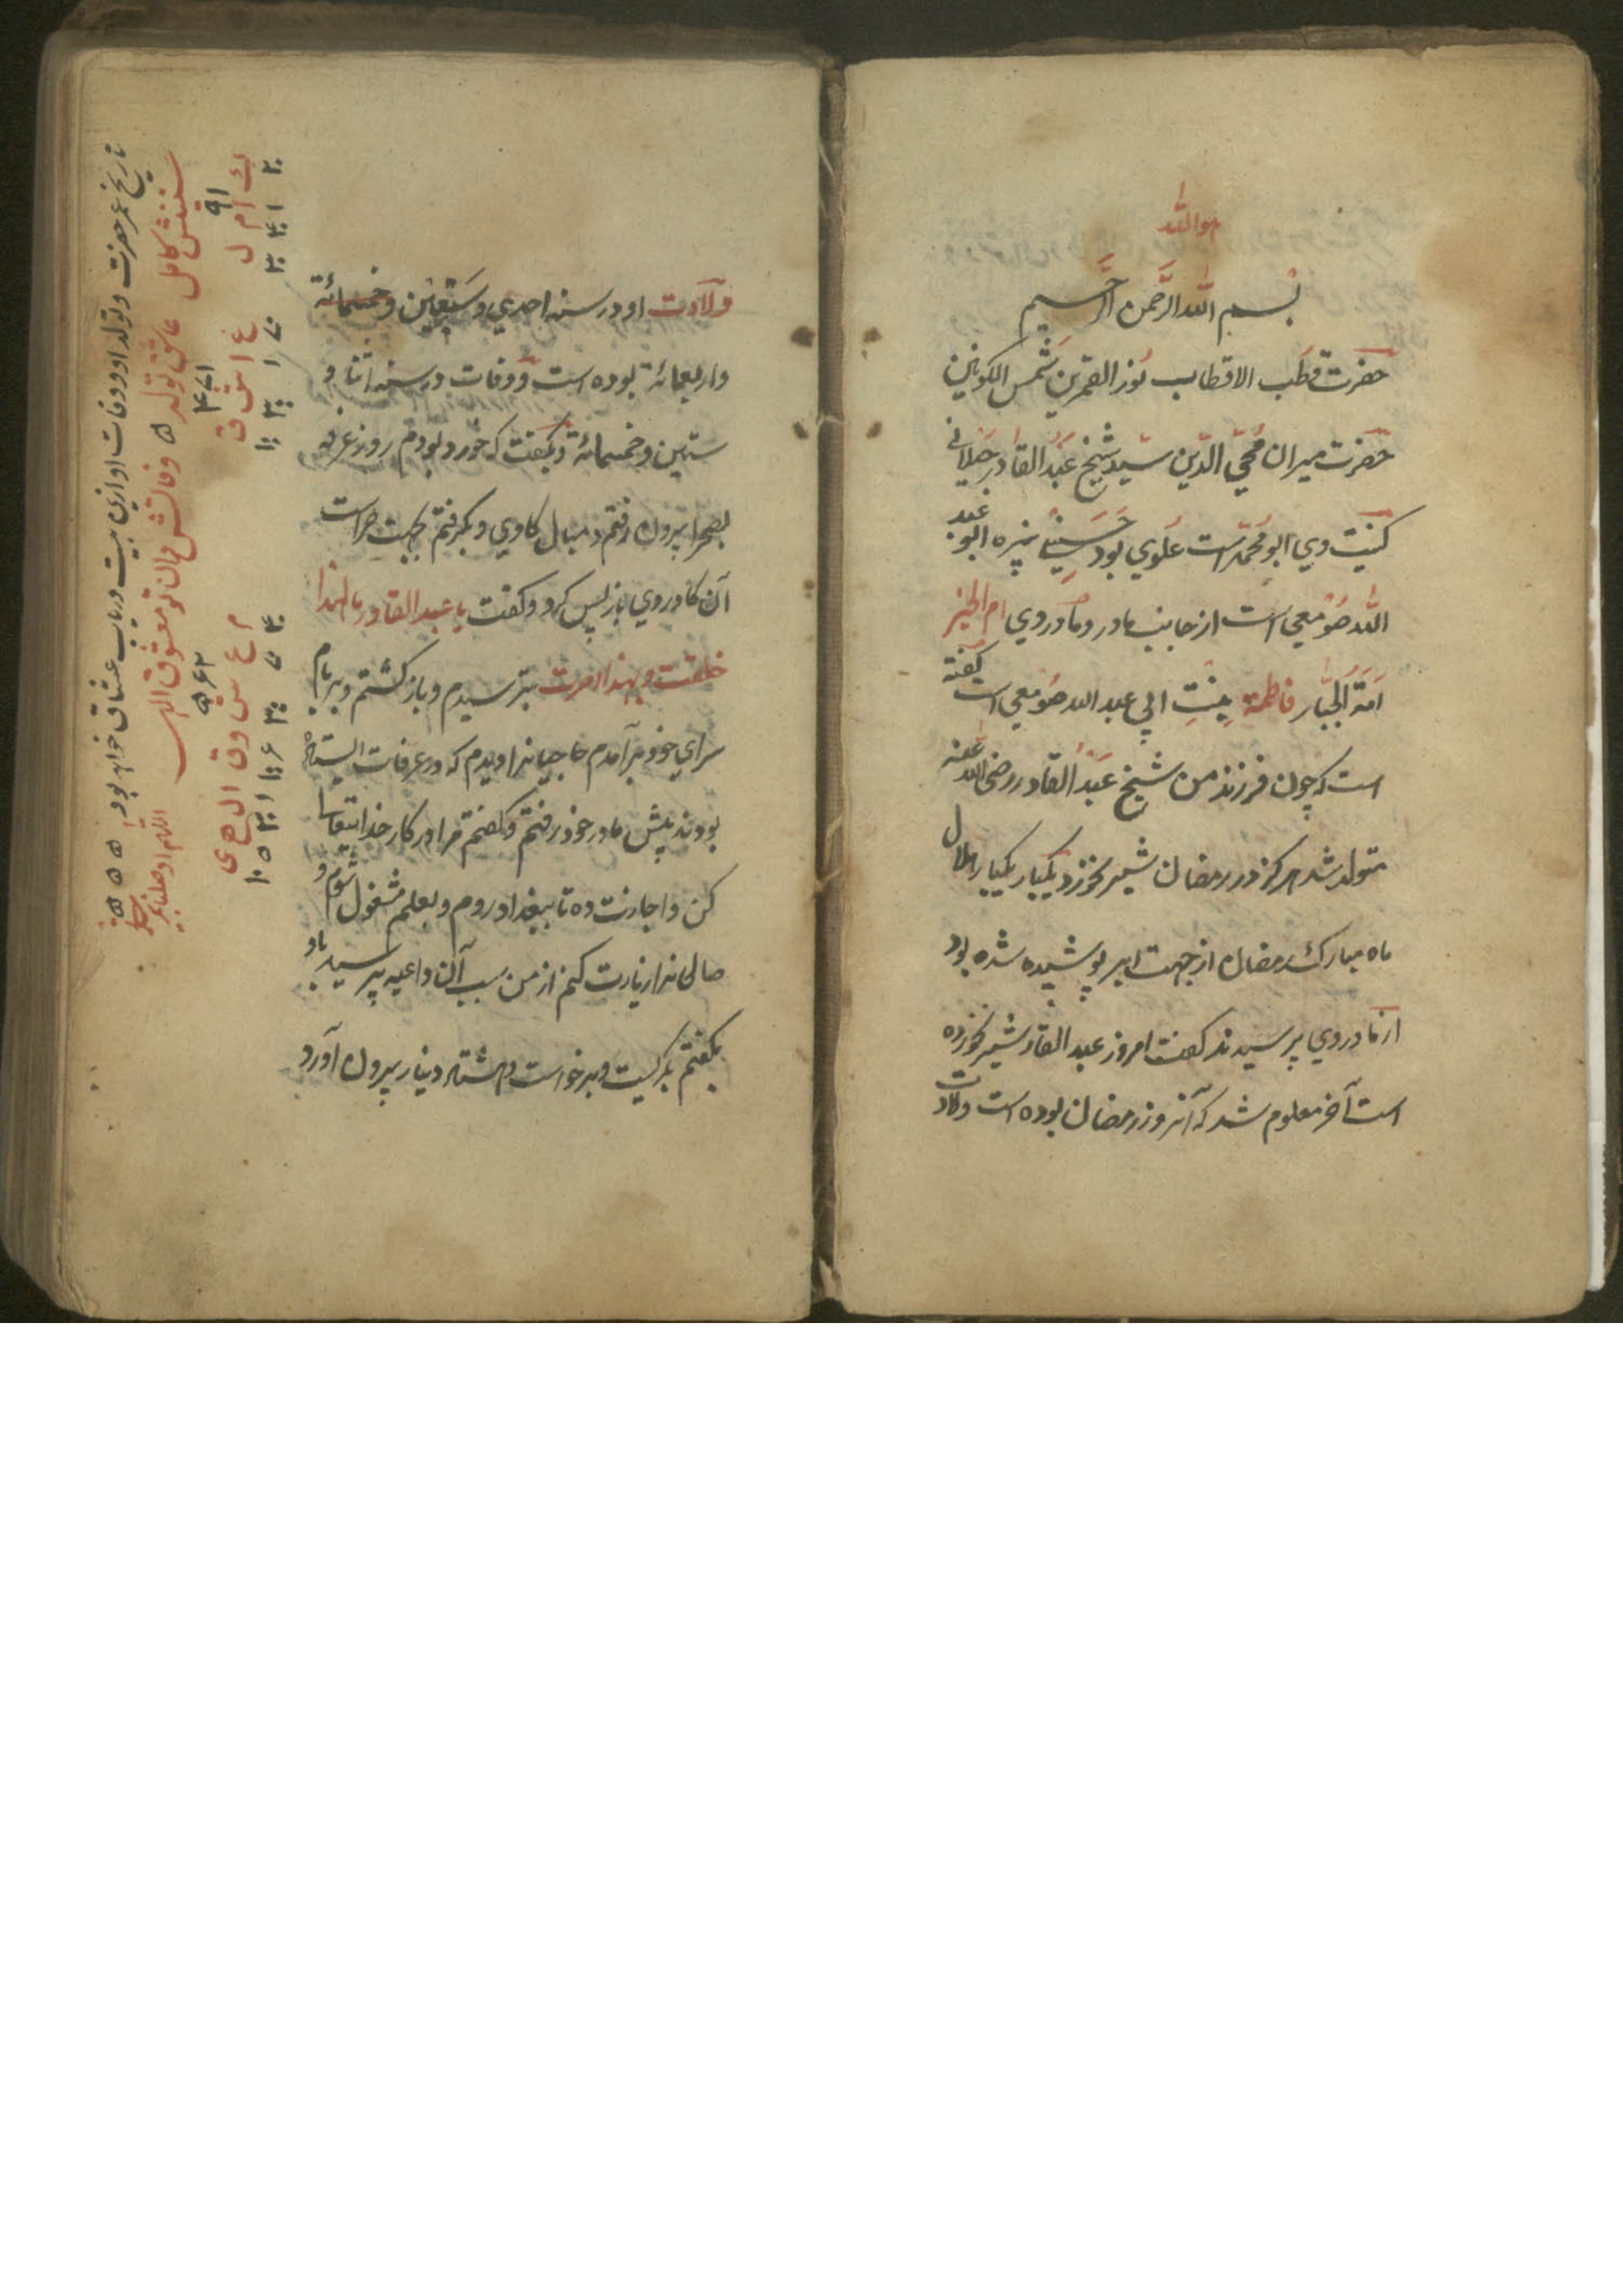 هو الله
بسم الله الرحمن الرحیم
حضرت قطب الاقطاب نور القمرین شمس الکونین
حضرت میران محي الدین سید شیخ عبد القادر جیلانی
کنیت وي ابو محمد است علوي بود حسیني نبیره ابو عبد
الله صومعي است از جانب مادر و مادر وي ام الخیر
امة الجبار فاطمة بنت ابي عبد الله صومعي است گفته
است که چون فرزند من شیخ عبد القادر رضی الله عنه
متولد شد هرگز در رمضان شیر نخورد یکبار هلال
ماه مبارک رمضان از جهت ابر پوشیده شده بود
از مادر وي پرسیدند گفت امروز عبد القادر شیر نخورده
است آخر معلوم شد که آنروز رمضان بوده است ولادت
ولادت او در سنه احدي و سبعین و خمسمائة
و اربعمائة بوده است و وفات در سنه اثنا و
ستین و خمسمائة و گفت که خورد بودم روز عرفه
بصحرا بیرون رفتم دنبال گاوي و بگرفتم بجهت حراست
آن گاو روي باز پس کرد و گفت یا عبد القادر ما لهذا
خلقت و بهذا امرت بترسیدم و باز گشتم و بر بام
سراي خود برآمدم حاجیانرا دیدم که در عرفات ایستاده
بودند پیش مادر خود رفتم و گفتم مرا در کار خدایتعالی
کن و اجازت ده تا ببغداد روم و بعلم مشغول شوم و
صالحانرا زیارت کنم از من سبب آن داعیه پرسید با او
بگفتم بگریست و برخواست و هشتاد دینار بیرون آورد
تاریخ عمر حضرت و تولد او و وفات او ازین بیت دریاب عشاق خوان بود
سنینش کامل عاشق تولد وفاتش دان تو معشوق الهی
۹۱
۴۷۱
۵۶۲
ک ا م ل
ع ا ش ق
م ع ش و ق ا ل ه ی
۲۰ ۱ ۴۰ ۳۰
۷۰ ۱ ۳۰۰ ۱۰۰
۴۰ ۷۰ ۳۰۰ ۶ ۱۰۰ ۱ ۳۰ ۵ ۱۰